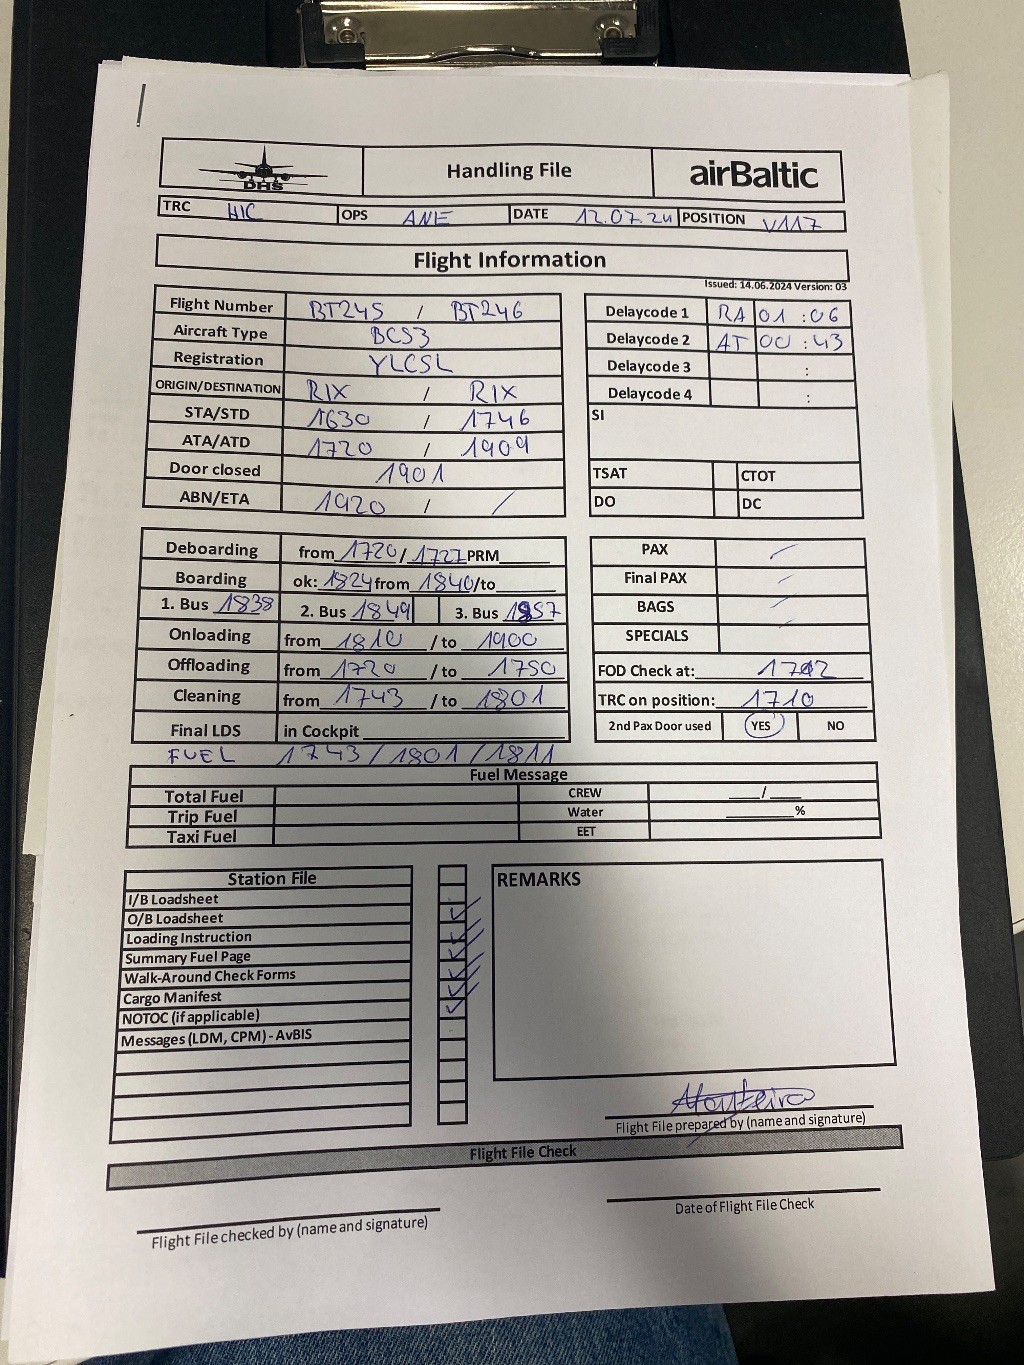 DHS Handling File airBaltic
TRC HIC OPS ANE DATE 12.07.24 POSITION V117
Flight Information
Issued: 14.06.2024 Version: 03
Flight Number BT245 / BT246
Aircraft Type BCS3
Registration YLCSL
ORIGIN/DESTINATION RIX / RIX
STA/STD 1630 / 1746
ATA/ATD 1720 / 1909
Door closed 1901
ABN/ETA 1920 / /
Delaycode 1 RA 01 : 06
Delaycode 2 AT 00 : 43
Delaycode 3 :
Delaycode 4 :
SI
TSAT CTOT
DO DC
Deboarding from 1720 / 1727 PRM
Boarding ok: 1824 from 1840 /to
1. Bus 1838 2. Bus 1849 3. Bus 1857
Onloading from 1810 / to 1900
Offloading from 1720 / to 1750
Cleaning from 1743 / to 1801
Final LDS in Cockpit
FUEL 1743 / 1801 / 1811
PAX /
Final PAX /
BAGS /
SPECIALS
FOD Check at: 1712
TRC on position: 1710
2nd Pax Door used YES NO
Fuel Message
Total Fuel CREW /
Trip Fuel Water %
Taxi Fuel EET
Station File
I/B Loadsheet
O/B Loadsheet
Loading Instruction
Summary Fuel Page
Walk-Around Check Forms
Cargo Manifest
NOTOC (if applicable)
Messages (LDM, CPM) - AvBIS
REMARKS
Flight File prepared by (name and signature)
Flight File Check
Flight File checked by (name and signature)
Date of Flight File Check